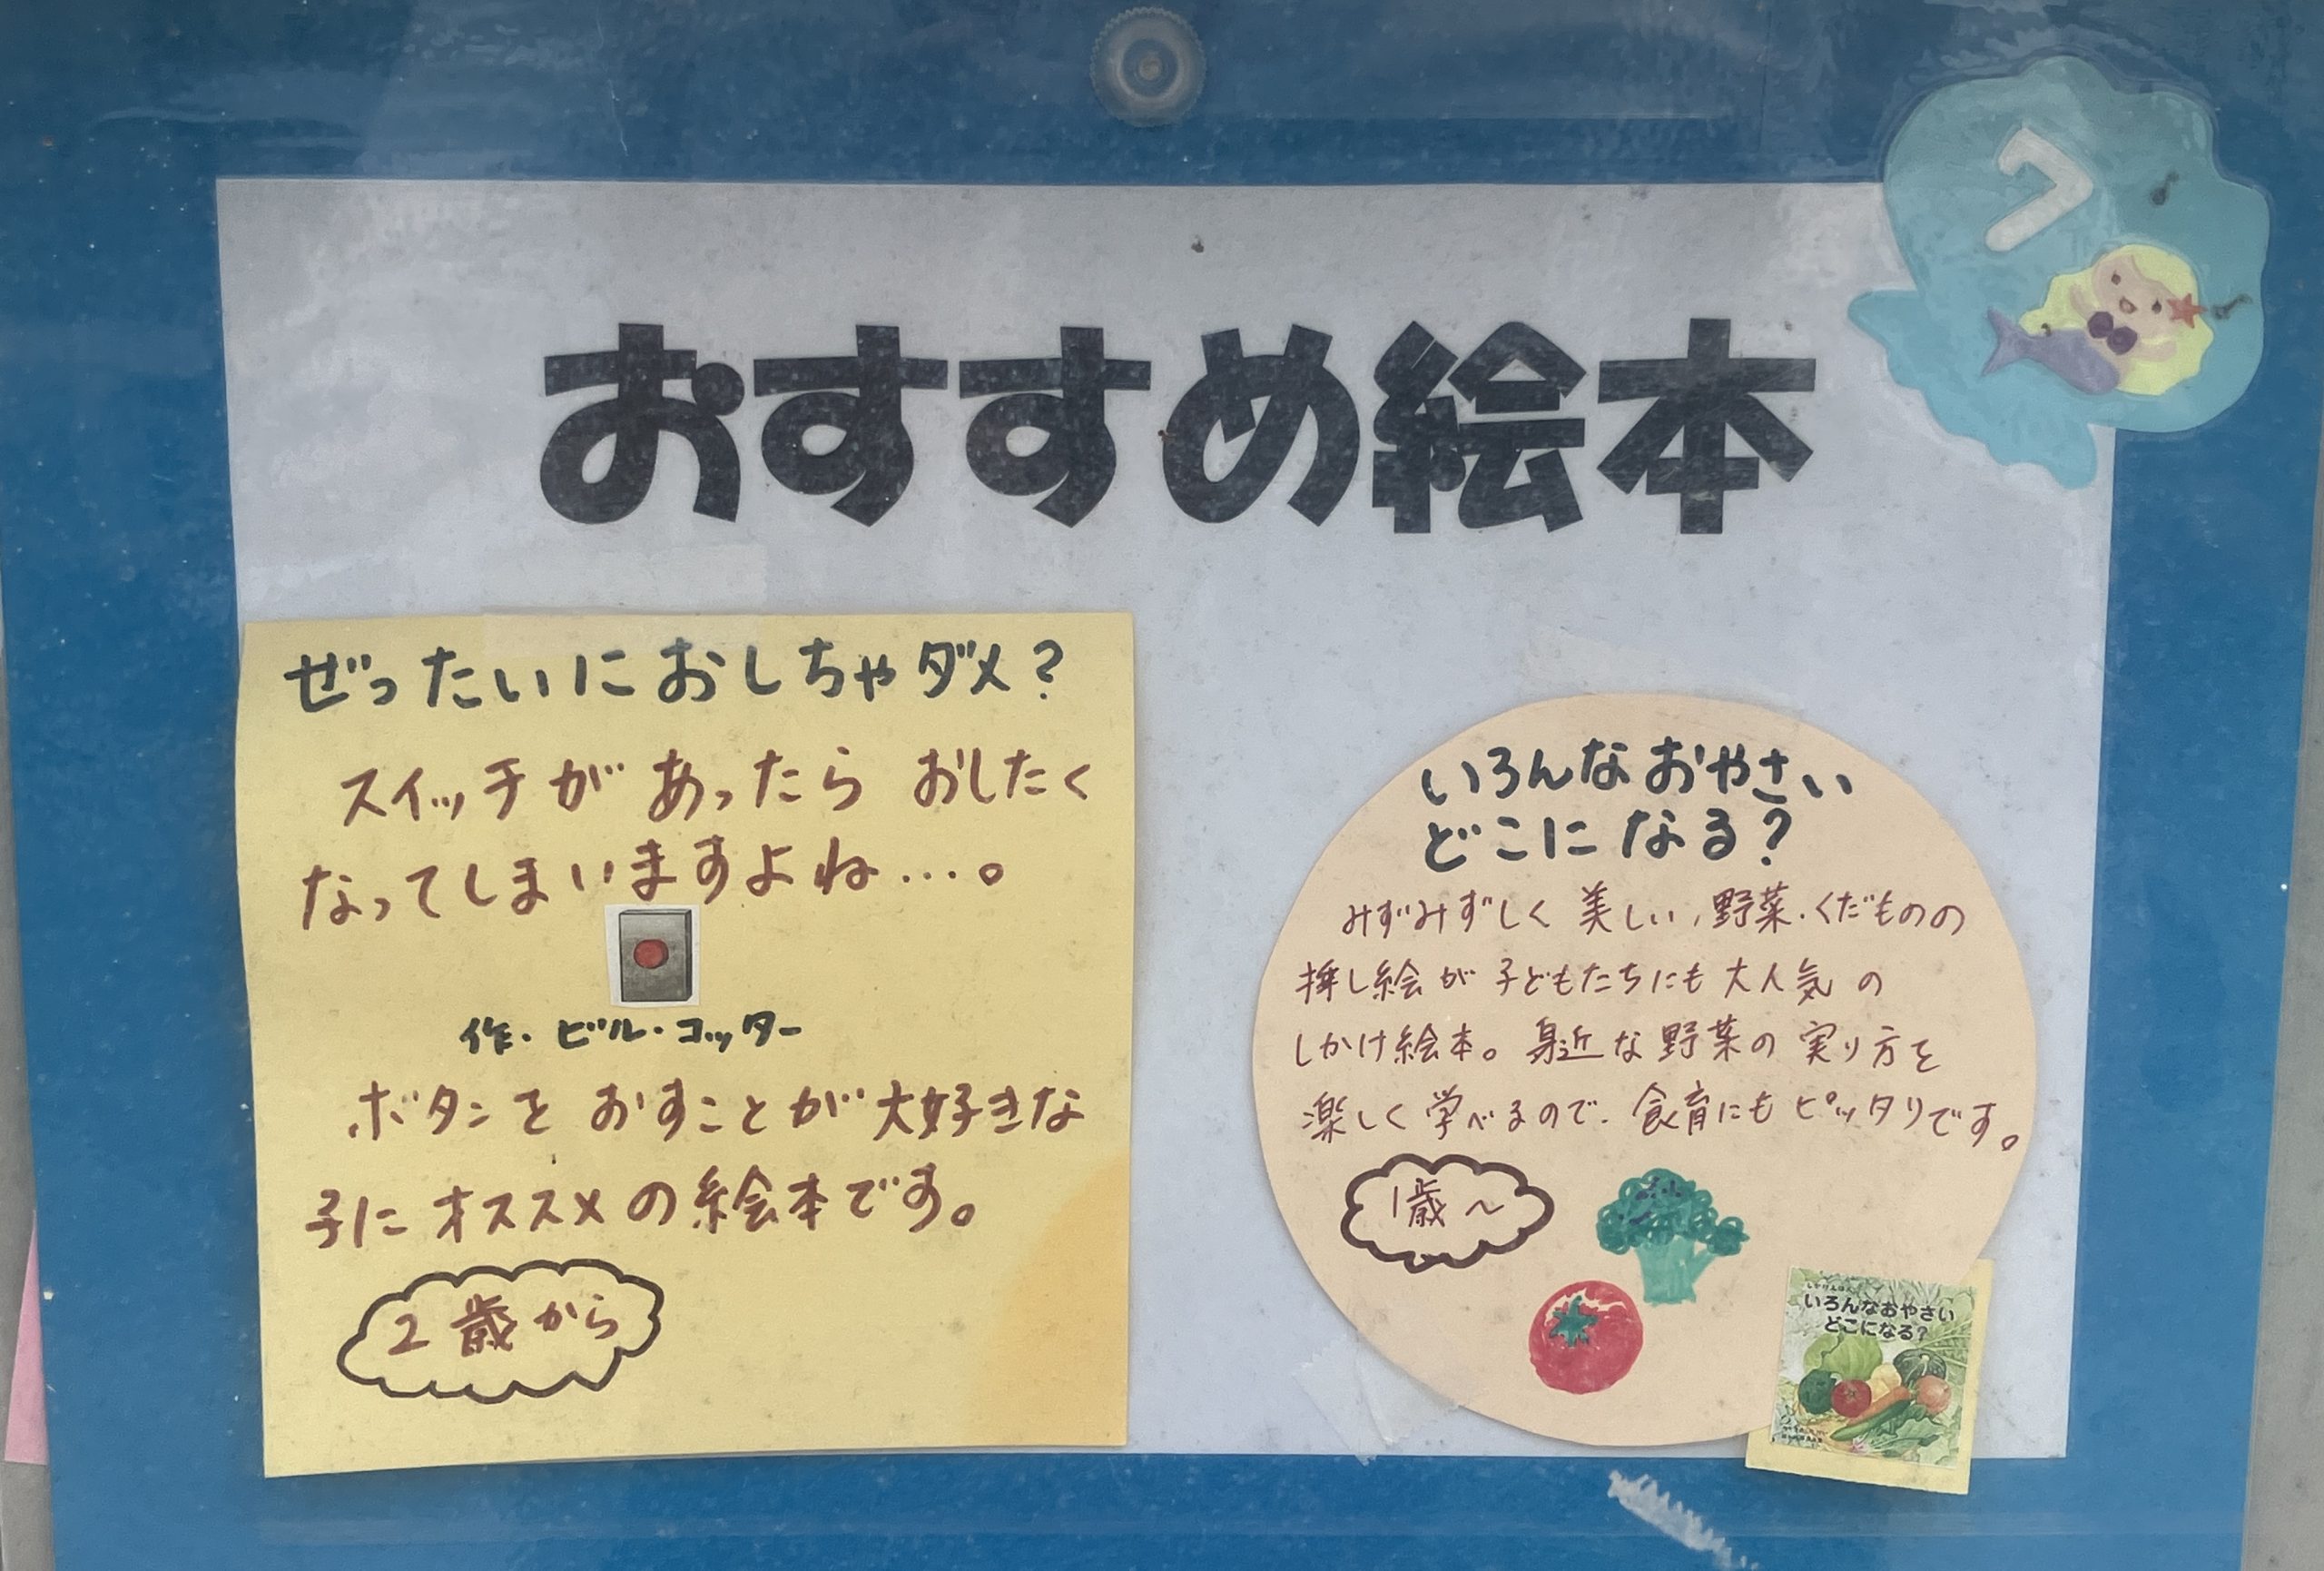 7
おすすめ絵本
ぜったいにおしちゃダメ?
スイッチがあったら おしたく
なってしまいますよね…。
作・ビル・コッター
ボタンを おすことが大好きな
子に オススメの絵本です。
2歳から
いろんなおやさい
どこに なる?
みずみずしく 美しい、野菜・くだものの
挿し絵が 子どもたちにも 大人気の
しかけ絵本。身近な野菜の 実り方を
楽しく 学べるので、食育にも ピッタリです。
1歳~
いろんなおやさい
どこになる?